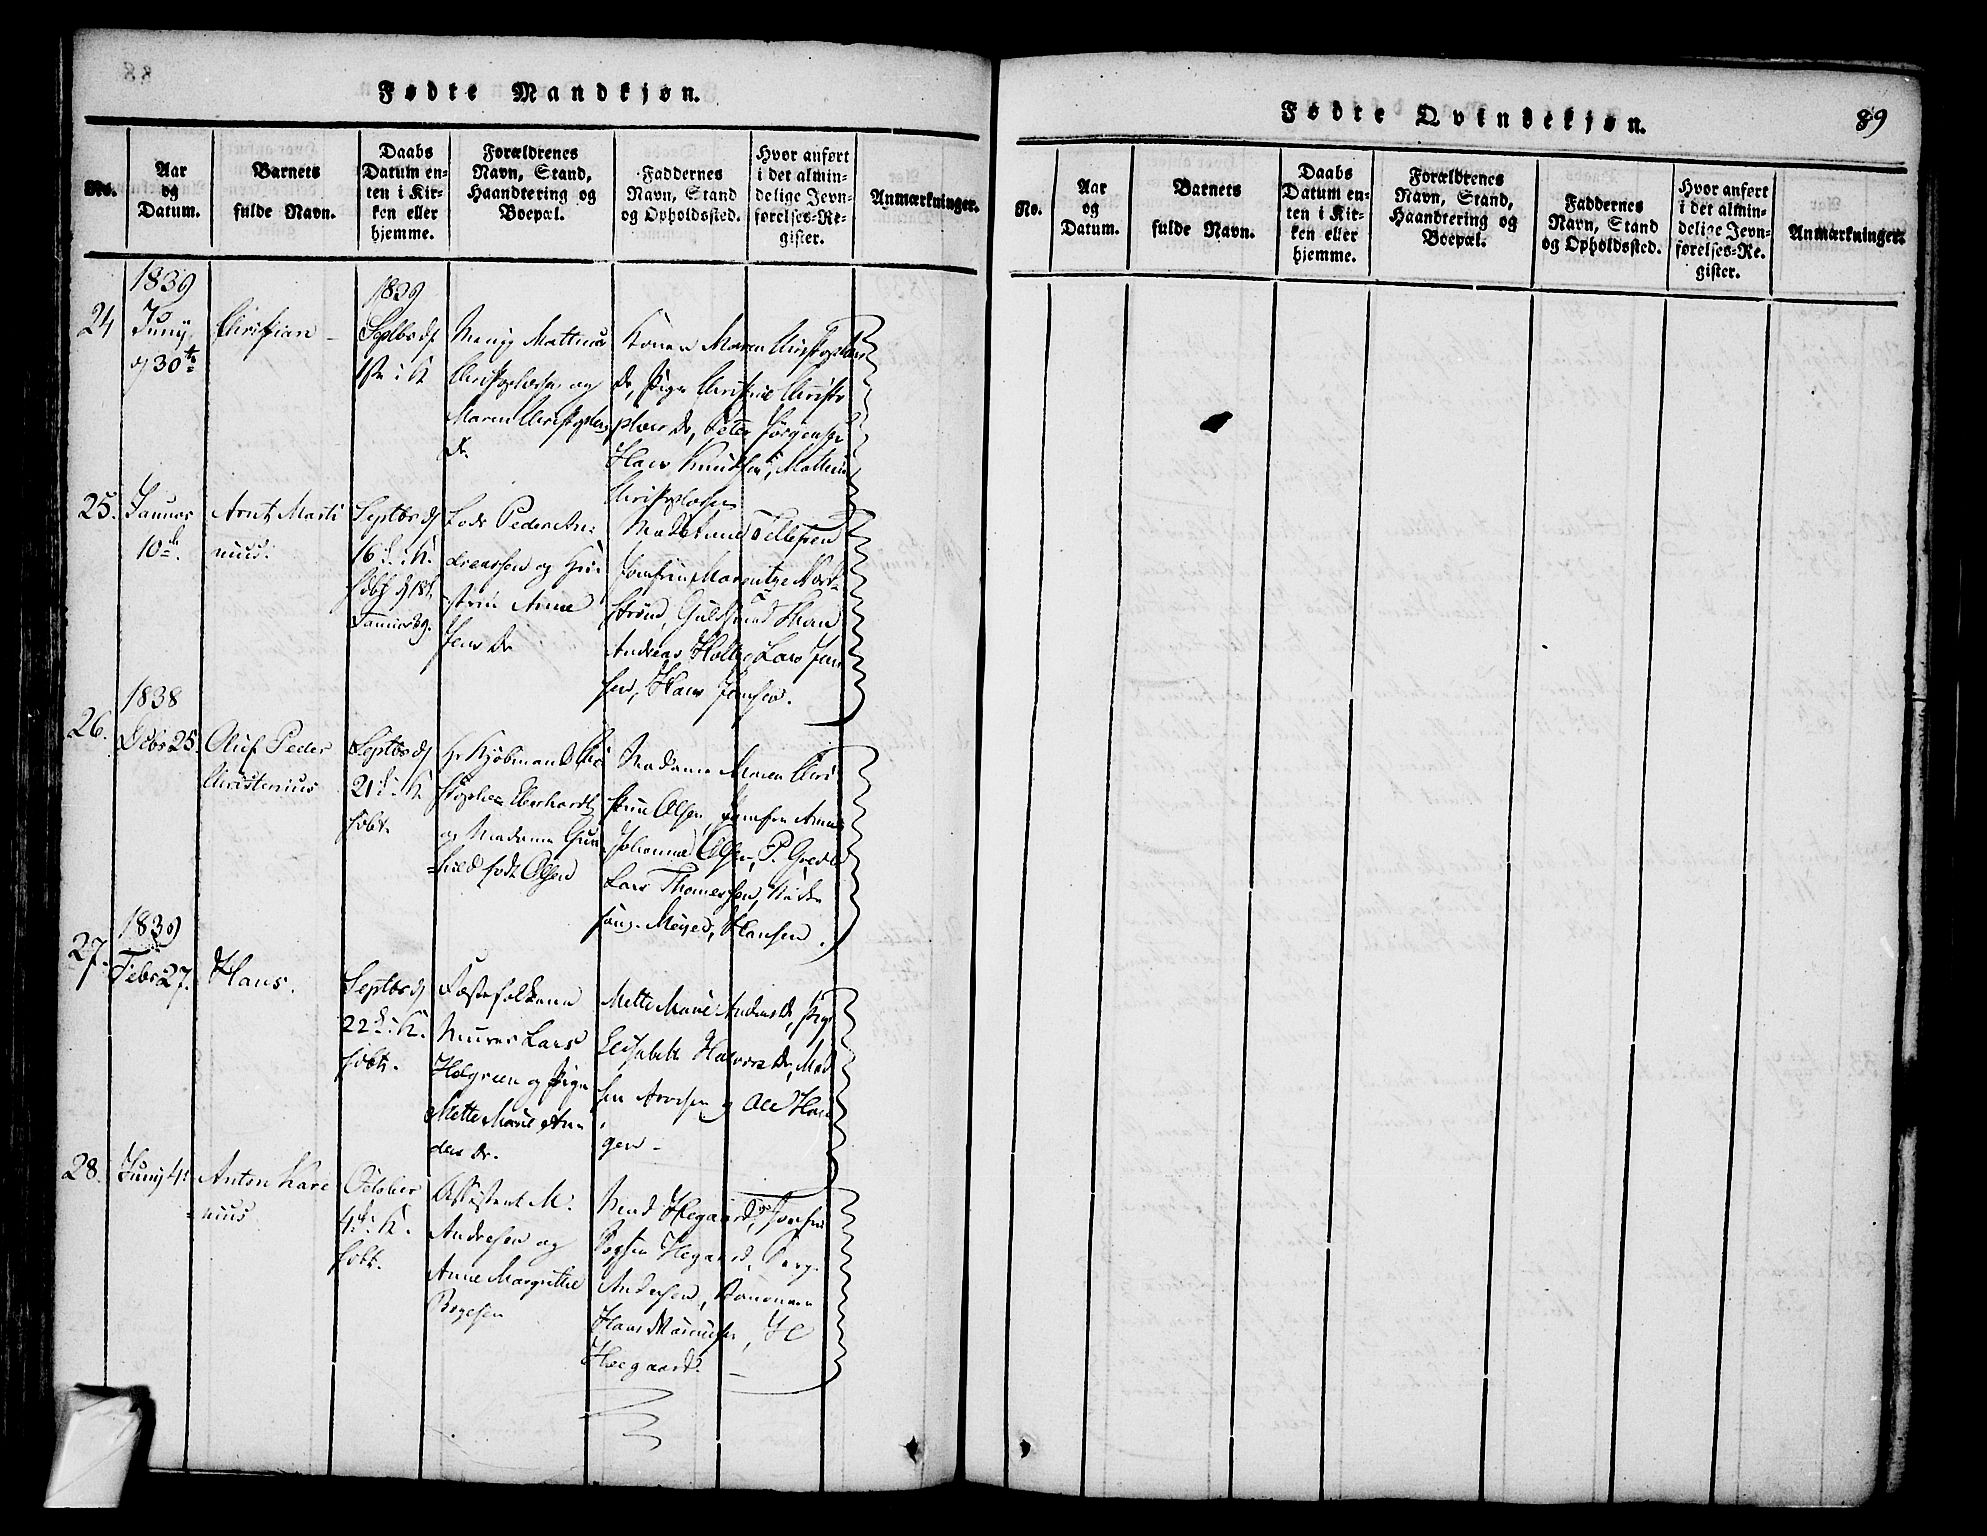 Fødte Mandkjøn.
No.
Aar
og
Datum.
Barnets
fulde Navn.
Daabs
Datum en-
ten i Kir-
ken eller
hjemme.
Forældrenes
Navn, Stand,
Haandtering og
Boepæl.
Faddernes
Navn, Stand
og Opholdssted.
Hvor anført
i det almin-
delige Jevn-
førelses-Re-
gister.
Anmærkninger.
24
1839
Juny
d 30te
Christian
1839
Septbr d
1ste i K
Mathias
Christophersen og
Maren Christophers
Dr.
Konen Maren Christophers
Dr, Pige Christine Christo
phers Dr, Peter Jørgensen
Hans Knudsen, Mathias
Christophersen
25.
Januar
10de.
Arnt Marti
nius.
Septbr d
16de i K.
døbt d 18t.
Januar 39.
Lods Peder An-
dreassen og Hu-
strue Anne
Jens Dr
Madame Tellefsen
Jomfru Maren
strøm, Guldsmed
Andreas Holte, Lars Jen
sen, Hans Jensen.
26.
1838
Debr 25.
Oluf Peder
Christenius
Septbr d
21de i K
døbt.
Hr Kjøbmand Chri
stopher Eberhardt
og Madame Gun
hild født Olsen
Madame Maren Chri
stine Olsen, Jomfru Anne
Johanne Olsen, P. Gredt
Lars Thomessen,
Meyer, Hansen.
27.
1839
Febr 27.
Hans.
Septbr d
22de i K.
døbt.
Fæstefolkene
Murer Lars
Holgreen og Pige
Mette Marie An-
ders Dr.
Mette Marie Anders Dr, Pige
Elisabeth Halvors Dr, Mad
sen Arvesen og Ole Hau
gen
28.
Juny 4.
Anton Kare
nius
October
4de i K.
døbt.
Assistent M.
Andresen og
Anne Margrethe
Bøgesen
Mad Hegaard, Jomfru
Hegaard,
Andersen,
Hans
Hoegaard.
Fødte Qvindekjøn.
89
No.
Aar
og
Datum.
Barnets
fulde Navn.
Daabs
Datum en-
ten i Kir-
ken eller
hjemme.
Forældrenes
Navn, Stand,
Haandtering og
Boepæl.
Faddernes
Navn, Stand
og Opholdssted.
Hvor anført
i det almin-
delige Jevn-
førelses-Re-
gister.
Anmærkninger.